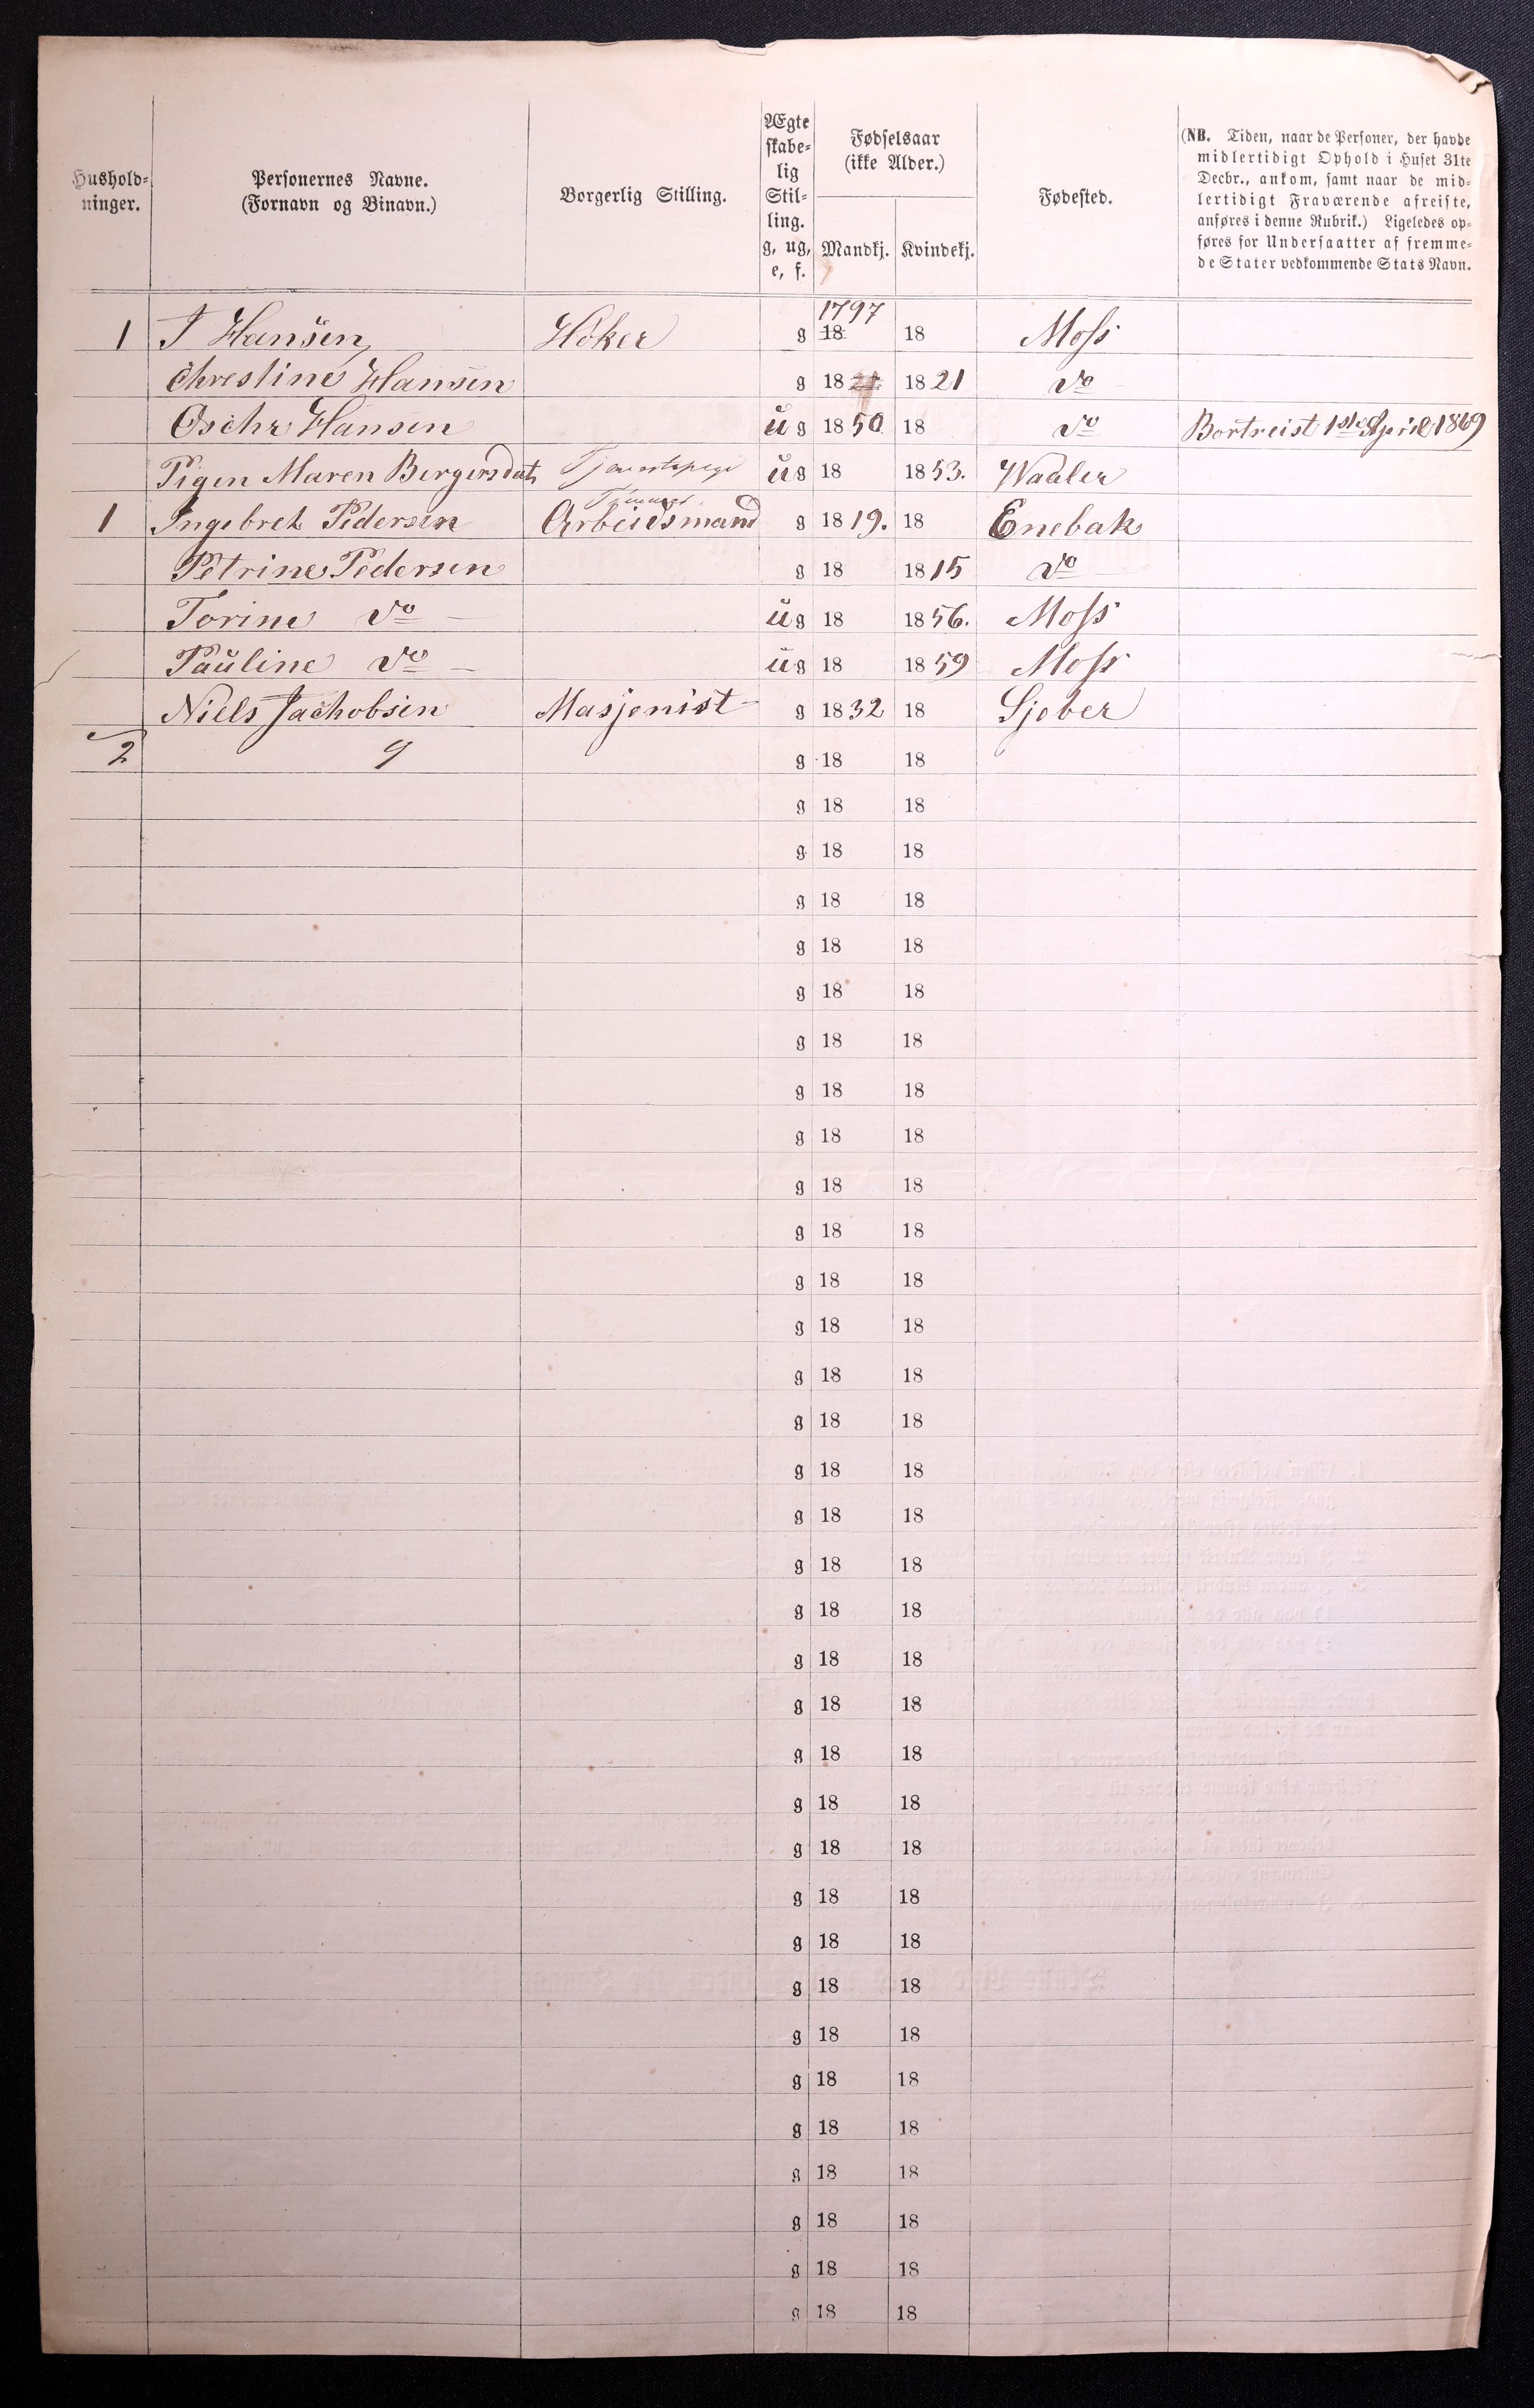 Hushold-
ninger.
Personernes Navne.
(Fornavn og Binavn.)
Borgerlig Stilling.
Ægte
skabe-
lig
Stil-
ling.
g, ug,
e, f.
Fødselsaar
(ikke Alder.)
Mandkj. Kvindekj.
Fødested.
(NB. Tiden, naar de Personer, der havde
midlertidigt Ophold i Huset 31te
Decbr., ankom, samt naar de mid-
lertidigt Fraværende afreiste,
anføres i denne Rubrik.) Ligeledes op-
føres for Undersaatter af fremme-
de Stater vedkommende Stats Navn.
1797
1 J Hansen Høker g 18 18 Moss
Chrestine Hansen g 18 21 18 21 do
Oschr Hansen ug 18 50 18 do Bortreist 1ste April 1869
Pigen Maren Bergersdat Tjenestepige ug 18 18 53. Waaler
1 Ingebret Pedersen Arbeidsmand g 18 19. 18 Enebak
Petrine Pedersen g 18 18 15 do
Torine do ug 18 18 56. Moss
Pauline do ug 18 18 59 Moss
Niels Jachobsen Masjenist g 18 32 18 Sjeber
2 9 g 18 18
g 18 18
g 18 18
g 18 18
g 18 18
g 18 18
g 18 18
g 18 18
g 18 18
g 18 18
g 18 18
g 18 18
g 18 18
g 18 18
g 18 18
g 18 18
g 18 18
g 18 18
g 18 18
g 18 18
g 18 18
g 18 18
g 18 18
g 18 18
g 18 18
g 18 18
g 18 18
g 18 18
g 18 18
g 18 18
g 18 18
g 18 18
g 18 18
g 18 18